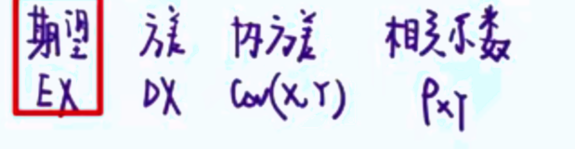 期望 方差 协方差 相关系数
EX DX Cov(X,Y) ρxY